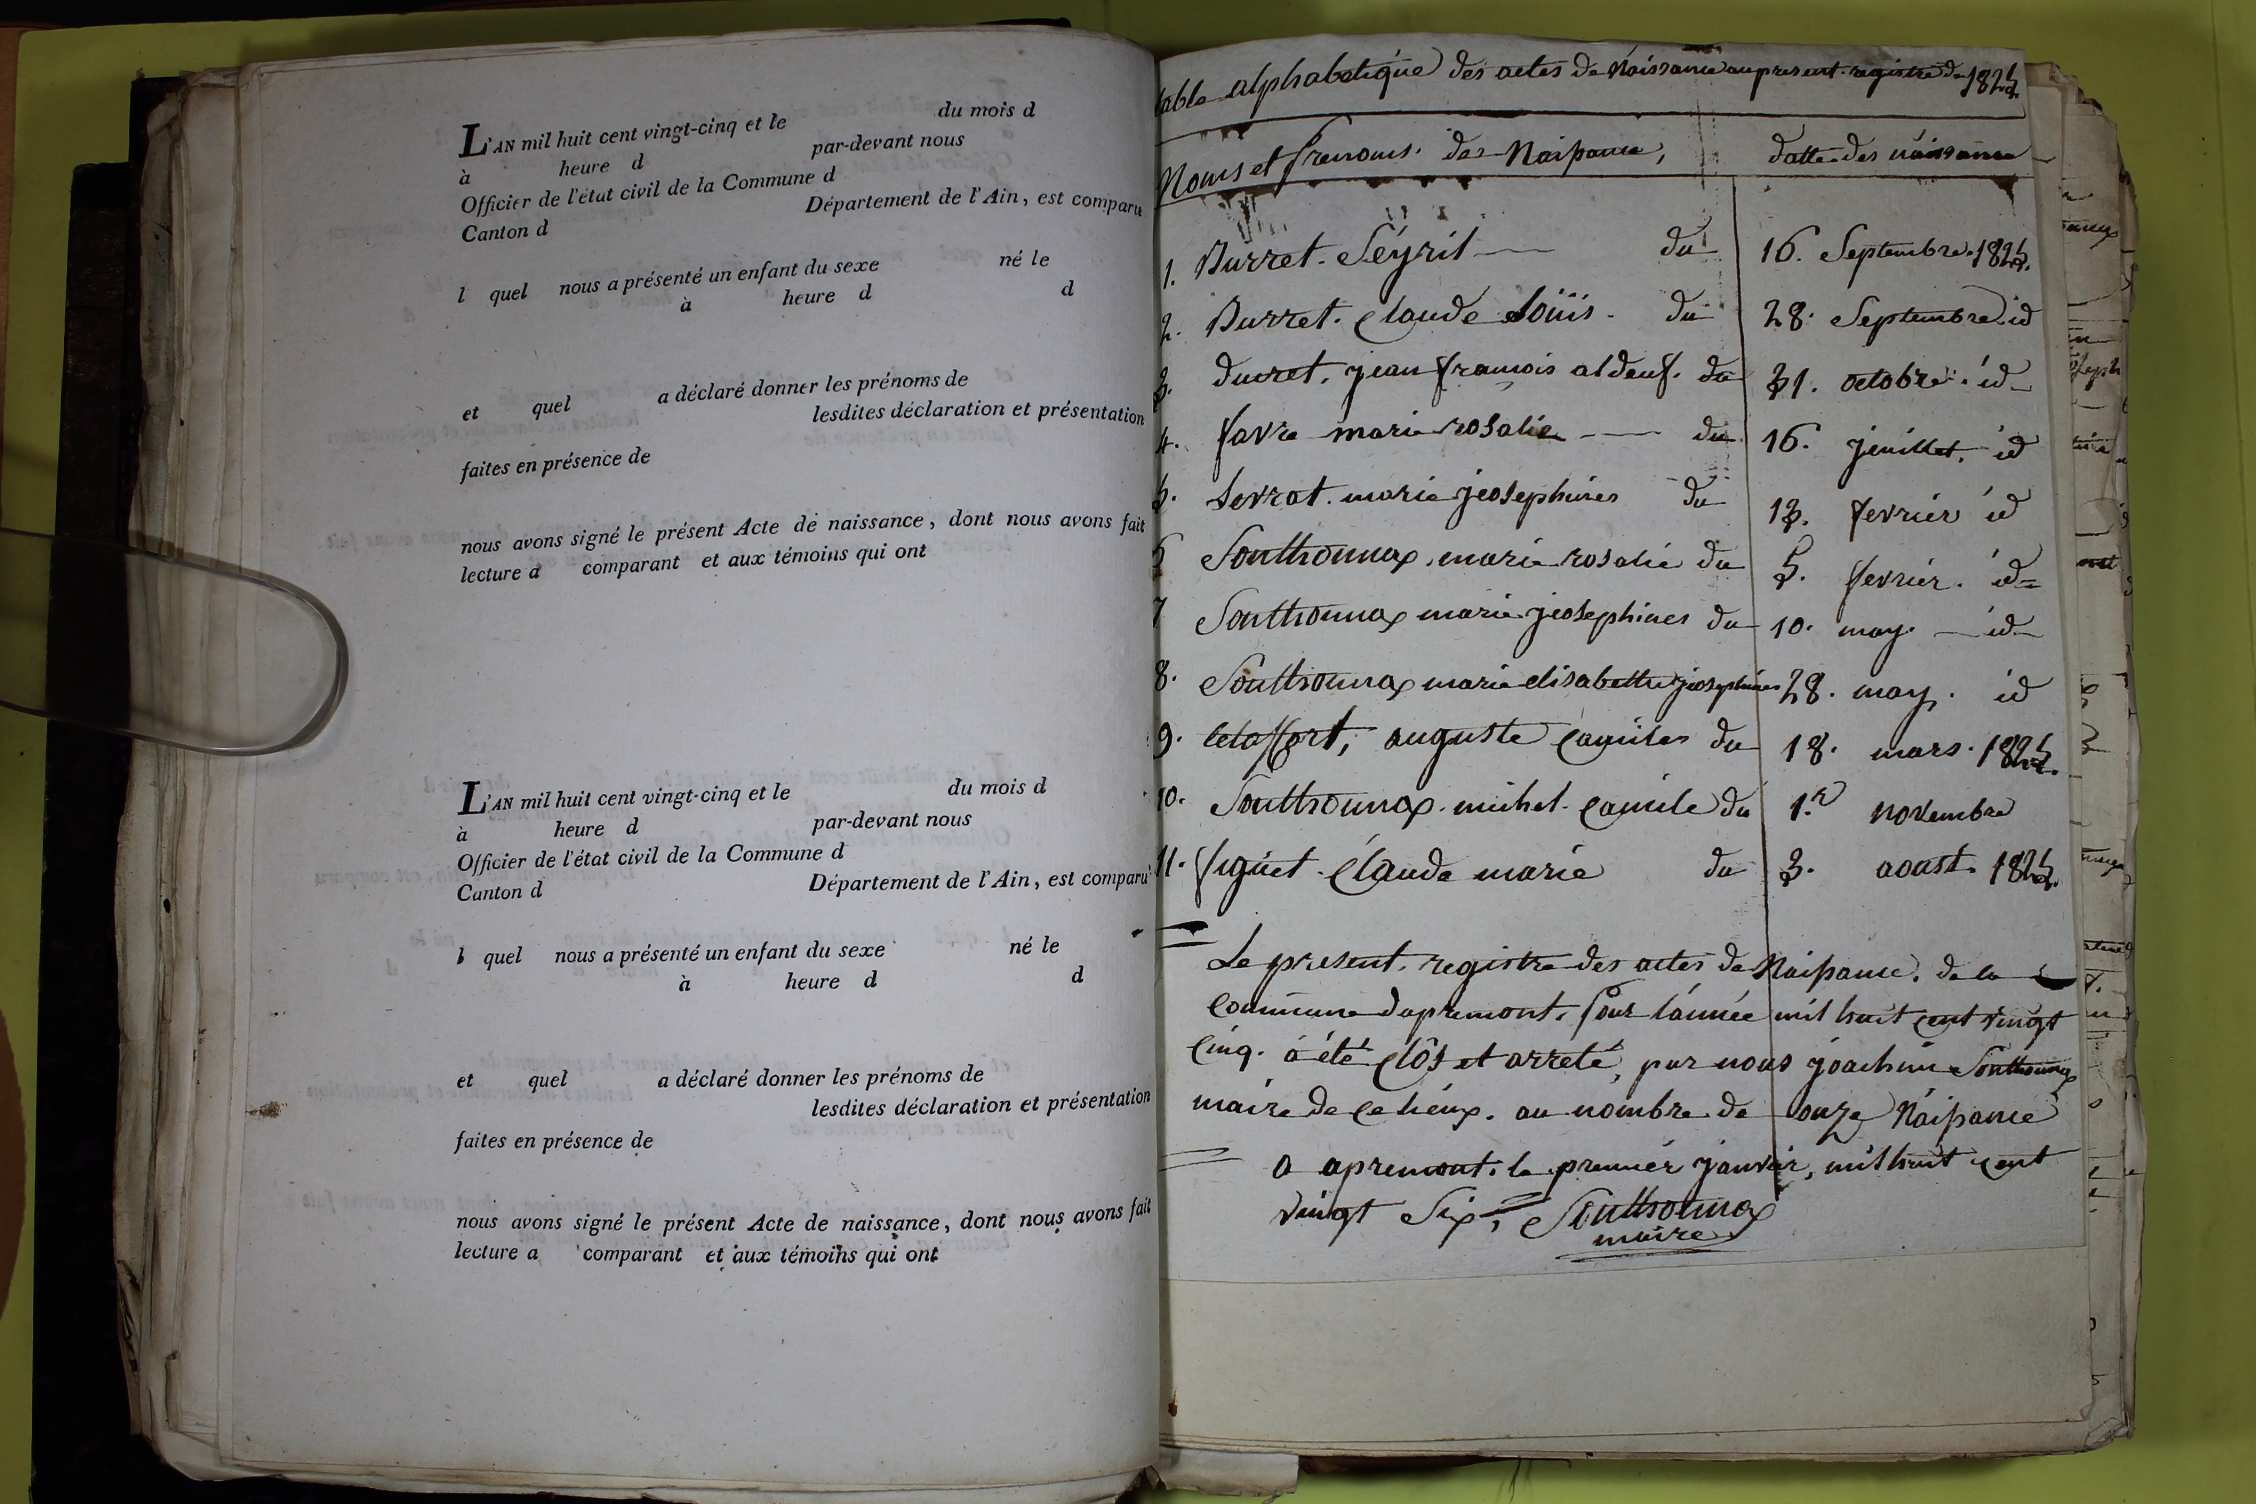 L'AN mil huit cent vingt-cinq et le du mois d
à heure d par-devant nous
Officier de l'état civil de la Commune d
Canton d Département de l'Ain, est comparu
l quel nous a présenté un enfant du sexe né le
à heure d d
et quel a déclaré donner les prénoms de
lesdites déclaration et présentation
faites en présence de
nous avons signé le présent Acte de naissance, dont nous avons fait
lecture a comparant et aux témoins qui ont
L'AN mil huit cent vingt-cinq et le du mois d
à heure d par-devant nous
Officier de l'état civil de la Commune d
Canton d Département de l'Ain, est comparu
l quel nous a présenté un enfant du sexe né le
à heure d d
et quel a déclaré donner les prénoms de
lesdites déclaration et présentation
faites en présence de
nous avons signé le présent Acte de naissance, dont nous avons fait
lecture a comparant et aux témoins qui ont
table alphabetique des actes de Naissance au present registre de 1825
Noms et prenoms des Naissance, datte des naissance
1. Burret. Séyril du 16. Septembre 1825.
2. Burret. Claude Loüis. du 28. Septembre id
3. ducret. jean francois du 31. octobre. id
4. favre marie rosalie du 16. jeuillet. id
5. Sevrat. marie jeosephines du 13. fevrier id
Sonthonnax. marie rosalie du 5. fevrier. id
7 Sonthonnax marie jeosephines du 10. may. id
8. Sonthonnax marie elisabethe jeosephines 28. may. id
9. auguste Camiles du 18. mars. 1825.
10. Sonthonnax. michel. Camile du 1.er novembre
11. figuet. Claude marie du 3. aoust. 1825.
Le present. registre des actes de Naissance. de la
Commune dapremont. pour l'année mil huit cent vingt
Cinq. a été Clôs et arreté, par nous joachim Sonthonnax
maire de ce lieux. au nombre de onze Naissance
a apremont. le premier janvier, mil huit cent
vingt Six, Sonthonnax
maire